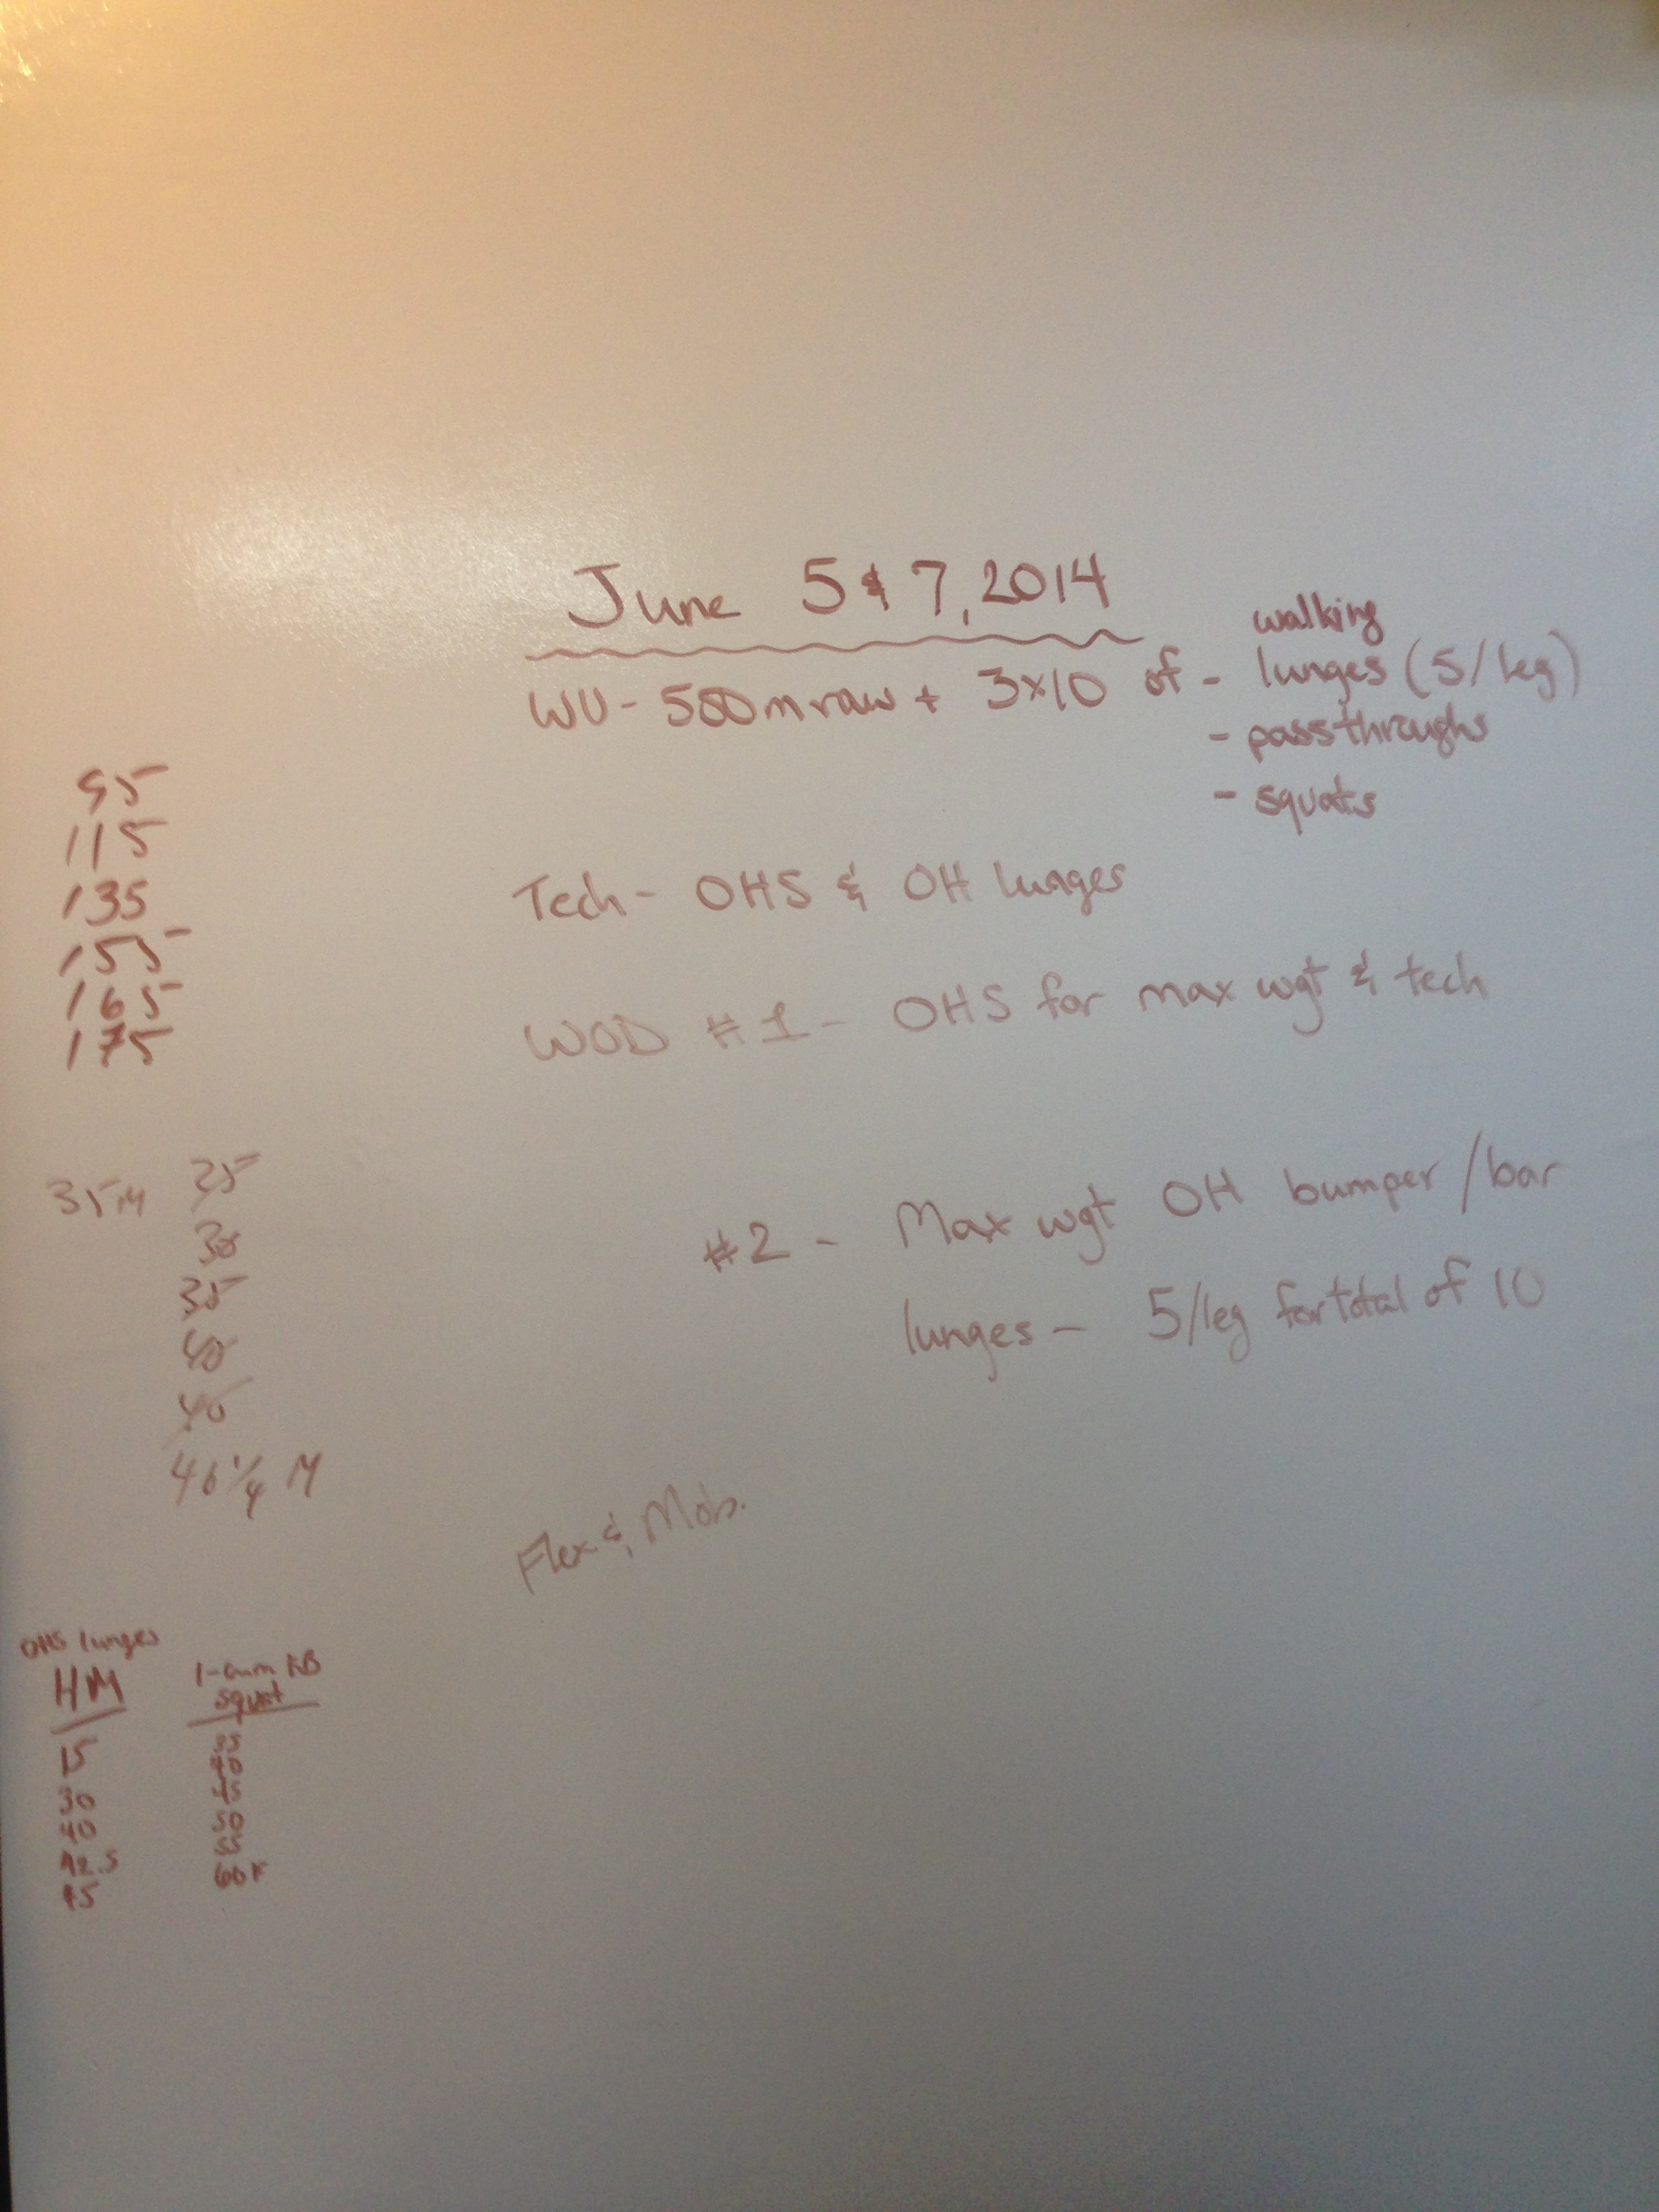 June 5 & 7, 2014
WU - 500m row + 3x10 of - walking
lunges (5/leg)
- passthroughs
- squats
Tech - OHS & OH lunges
WOD #1 - OHS for max wgt & tech
#2 - Max wgt OH bumper/bar
lunges - 5/leg for total of 10
Flex & Mob.
95
115
135
155
165
175
35M
25
30
35
40
46 1/4 M
OHS lunges
HM
15
30
40
42.5
45
1-arm KB
squat
35
40
45
50
55
60#